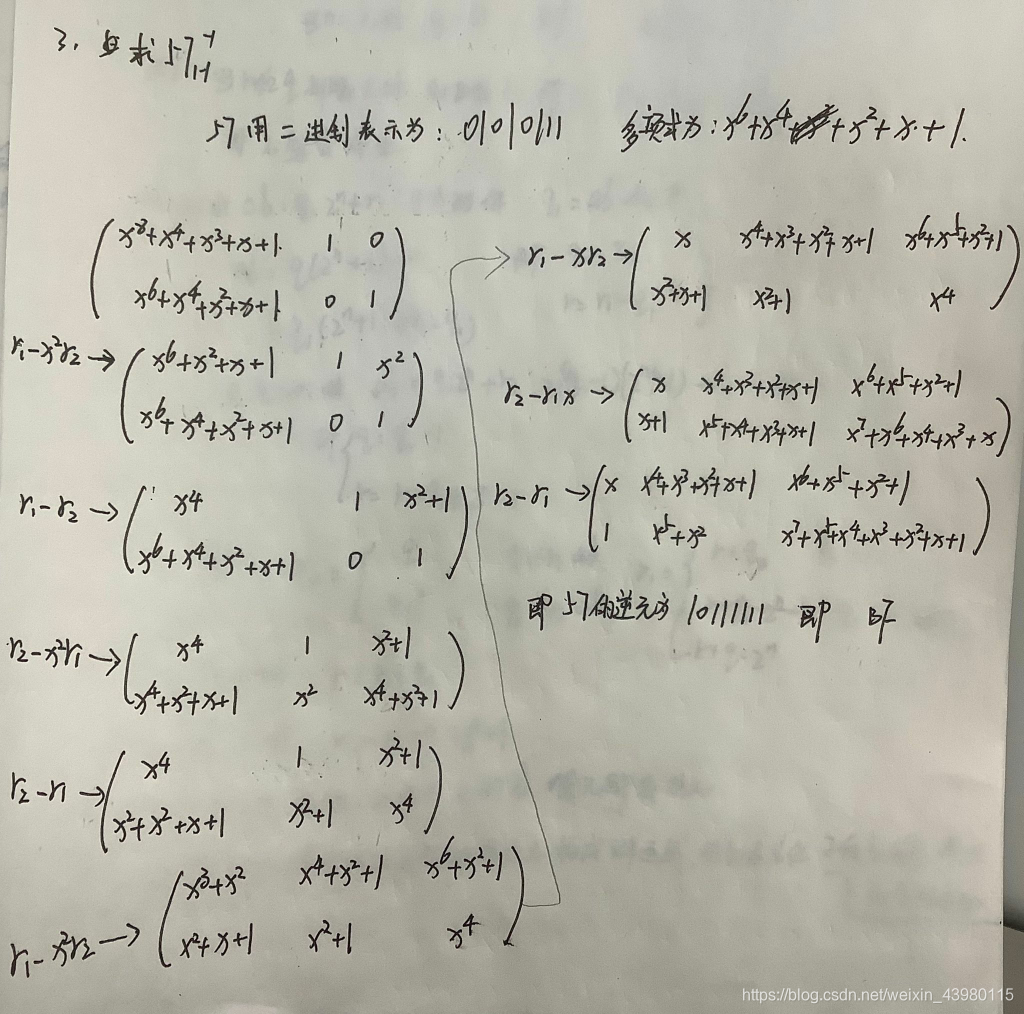 3. 且求 57⁻¹H
57用二进制表示为：01010111 多项式为：x⁶+x⁴+x²+x+1.
(x⁸+x⁴+x³+x+1 1 0)
(x⁶+x⁴+x²+x+1 0 1)
r₁-x²r₂→(x⁶+x²+x+1 1 x²)
(x⁶+x⁴+x²+x+1 0 1)
r₁-r₂→(x⁴ 1 x²+1)
(x⁶+x⁴+x²+x+1 0 1)
r₂-x²r₁→(x⁴ 1 x²+1)
(x⁴+x²+x+1 x² x⁴+x²+1)
r₂-r₁→(x⁴ 1 x²+1)
(x²+x²+x+1 x²+1 x⁴)
r₁-x²r₂→(x³+x² x⁴+x²+1 x⁶+x²+1)
(x²+x+1 x²+1 x⁴)
r₁-xr₂→(x x⁴+x³+x²+x+1 x⁶+x⁵+x²+1)
(x²+x+1 x²+1 x⁴)
r₂-r₁x→(x x⁴+x³+x²+x+1 x⁶+x⁵+x²+1)
(x+1 x⁵+x⁴+x³+x+1 x⁷+x⁶+x⁴+x³+x)
r₂-r₁→(x x⁴+x³+x²+x+1 x⁶+x⁵+x²+1)
(1 x⁵+x² x⁷+x⁵+x⁴+x³+x²+x+1)
即57的逆元为 10111111 即 BF
https://blog.csdn.net/weixin_43980115